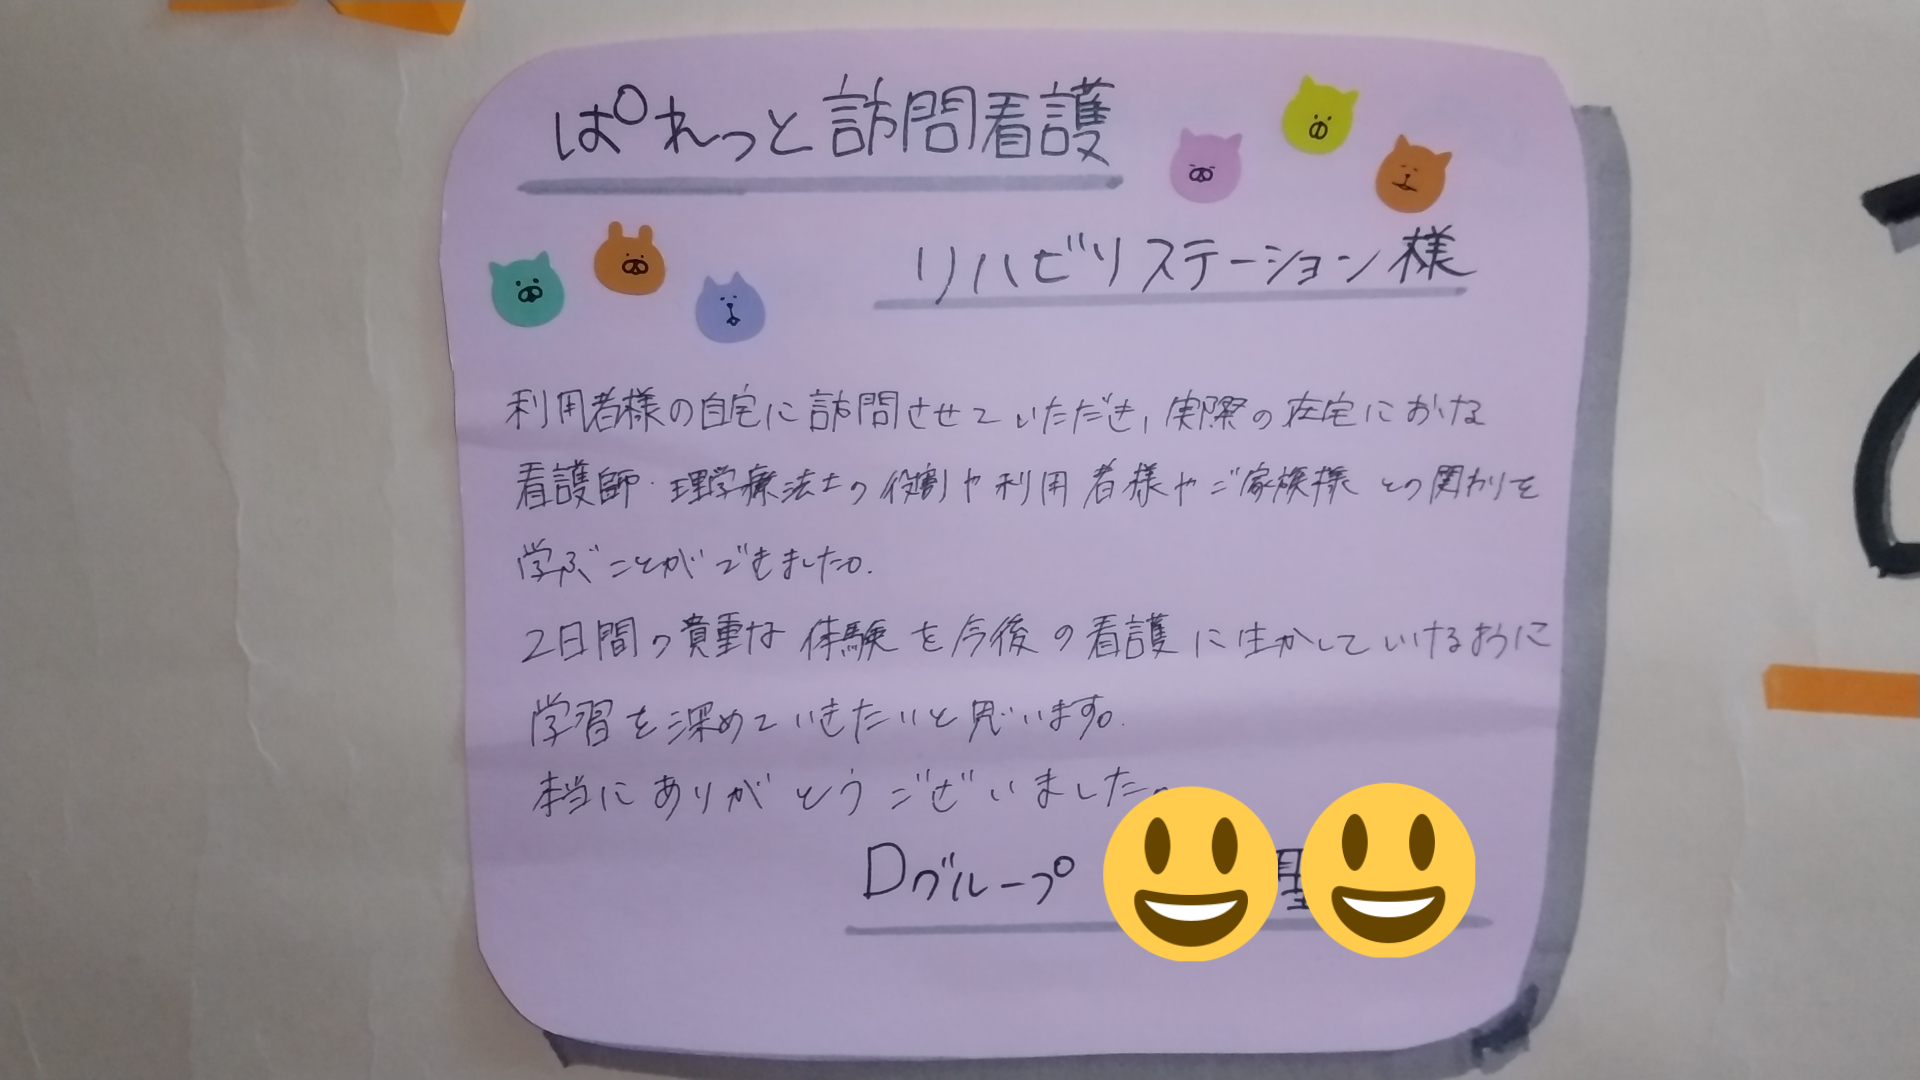 ぱれっと訪問看護
リハビリステーション様
利用者様の自宅に訪問させていただき、実際の在宅における
看護師・理学療法士の役割や利用者様やご家族様との関わりを
学ぶことができました。
2日間の貴重な体験を今後の看護に生かしていけるように
学習を深めていきたいと思います。
本当にありがとうございました。
Dグループ